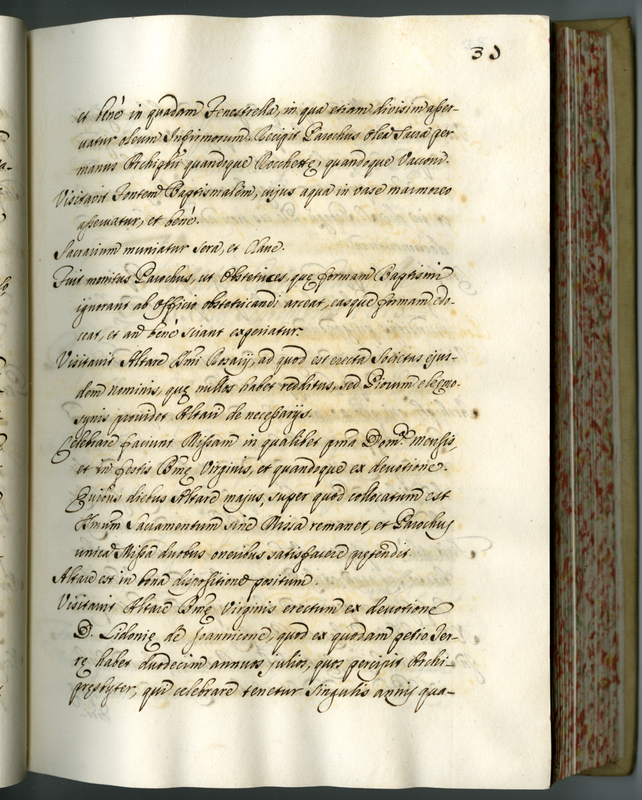 31
et benè in quadam Fenestrella, in qua etiam divisim asser-
vatur oleum Infirmorum. Recipit Parochus olea Sacra per
manus Archipbri quandoque Rocchettę, quandoque
Visitavit Fontem Baptismalem, cujus aqua in vase marmoreo
asservatur, et benè.
Sacrarium muniatur sera, et Clave.
Fuit monitus Parochus, ut Obstetrices, quę formam Baptismi
ignorant ab officio obstetricandi arceat, easque formam edo-
ceat, et an benè sciant experiatur.
Visitavit Altare Smi Rosarij, ad quod est erecta Societas ejus-
dem nominis, quę nullos habet redditus, sed Piorum eleemo-
synis providet Altari de necessarijs.
Celebrare faciunt Missam in qualibet pma Domca mensis,
et in festis Bmę Virginis, et quandoque ex devotione.
Quibus diebus Altare majus, super quod collocatum est
Smum Sacramentum sine Missa remanet, et Parochus
unica Missa duobus oneribus satisfacere prętendit.
Altare est in bona dispositione positum.
Visitavit Altare Bmę Virginis erectum ex devotione
D. Lidonię de Joannicone, quod ex quodam petio Ter-
rę habet duodecim annuos julios, quos percipit Archi-
presbyter, qui celebrare tenetur singulis annis qua-